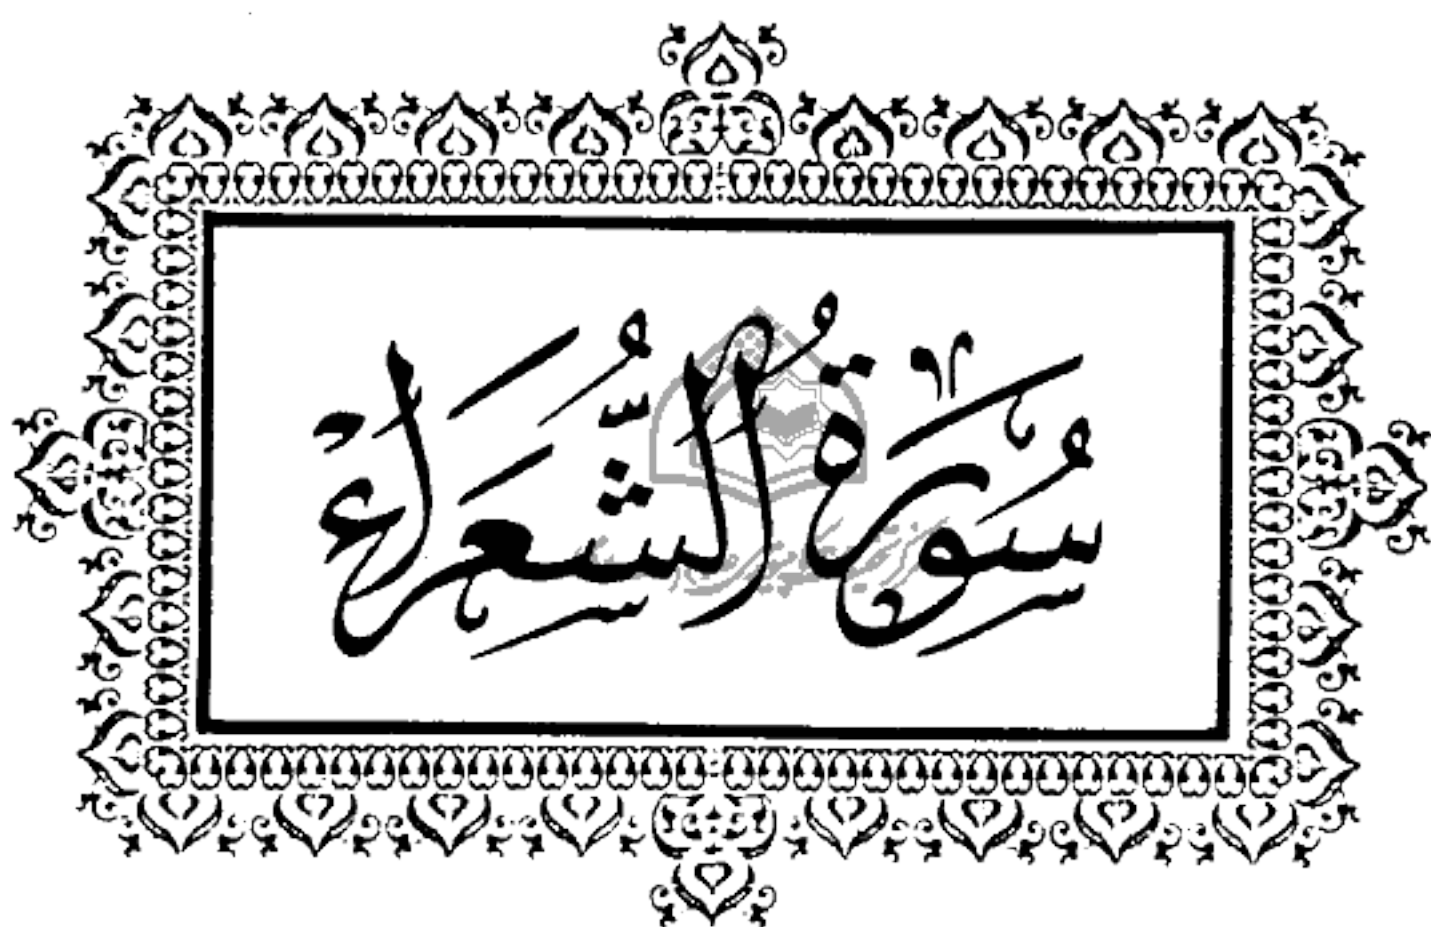 سُورَةُ الشُّعَرَاءِ